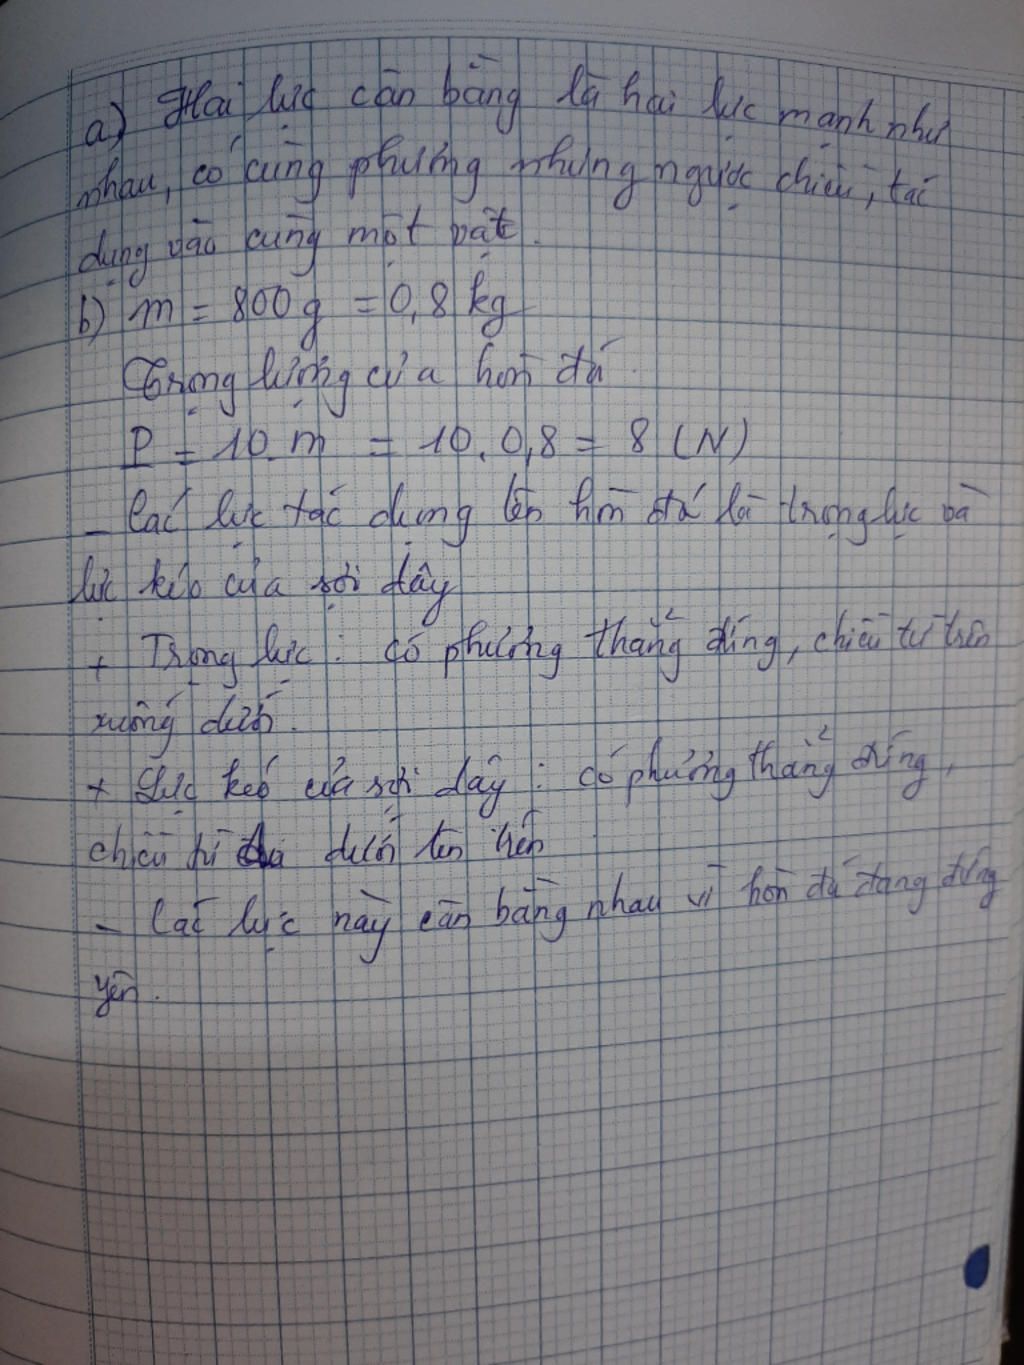 a) Hai lực cân bằng là hai lực mạnh như
nhau, có cùng phương nhưng ngược chiều, tác
dụng vào cùng một vật.
b) m = 800g = 0,8 kg
Trọng lượng của hòn đá.
P = 10.m = 10.0,8 = 8 (N)
- Các lực tác dụng lên hòn đá là trọng lực và
lực kéo của sợi dây
+ Trọng lực : có phương thẳng đứng, chiều từ trên
xuống dưới.
+ Lực kéo của sợi dây : có phương thẳng đứng,
chiều từ dưới lên trên
- Các lực này cân bằng nhau vì hòn đá đang đứng
yên.